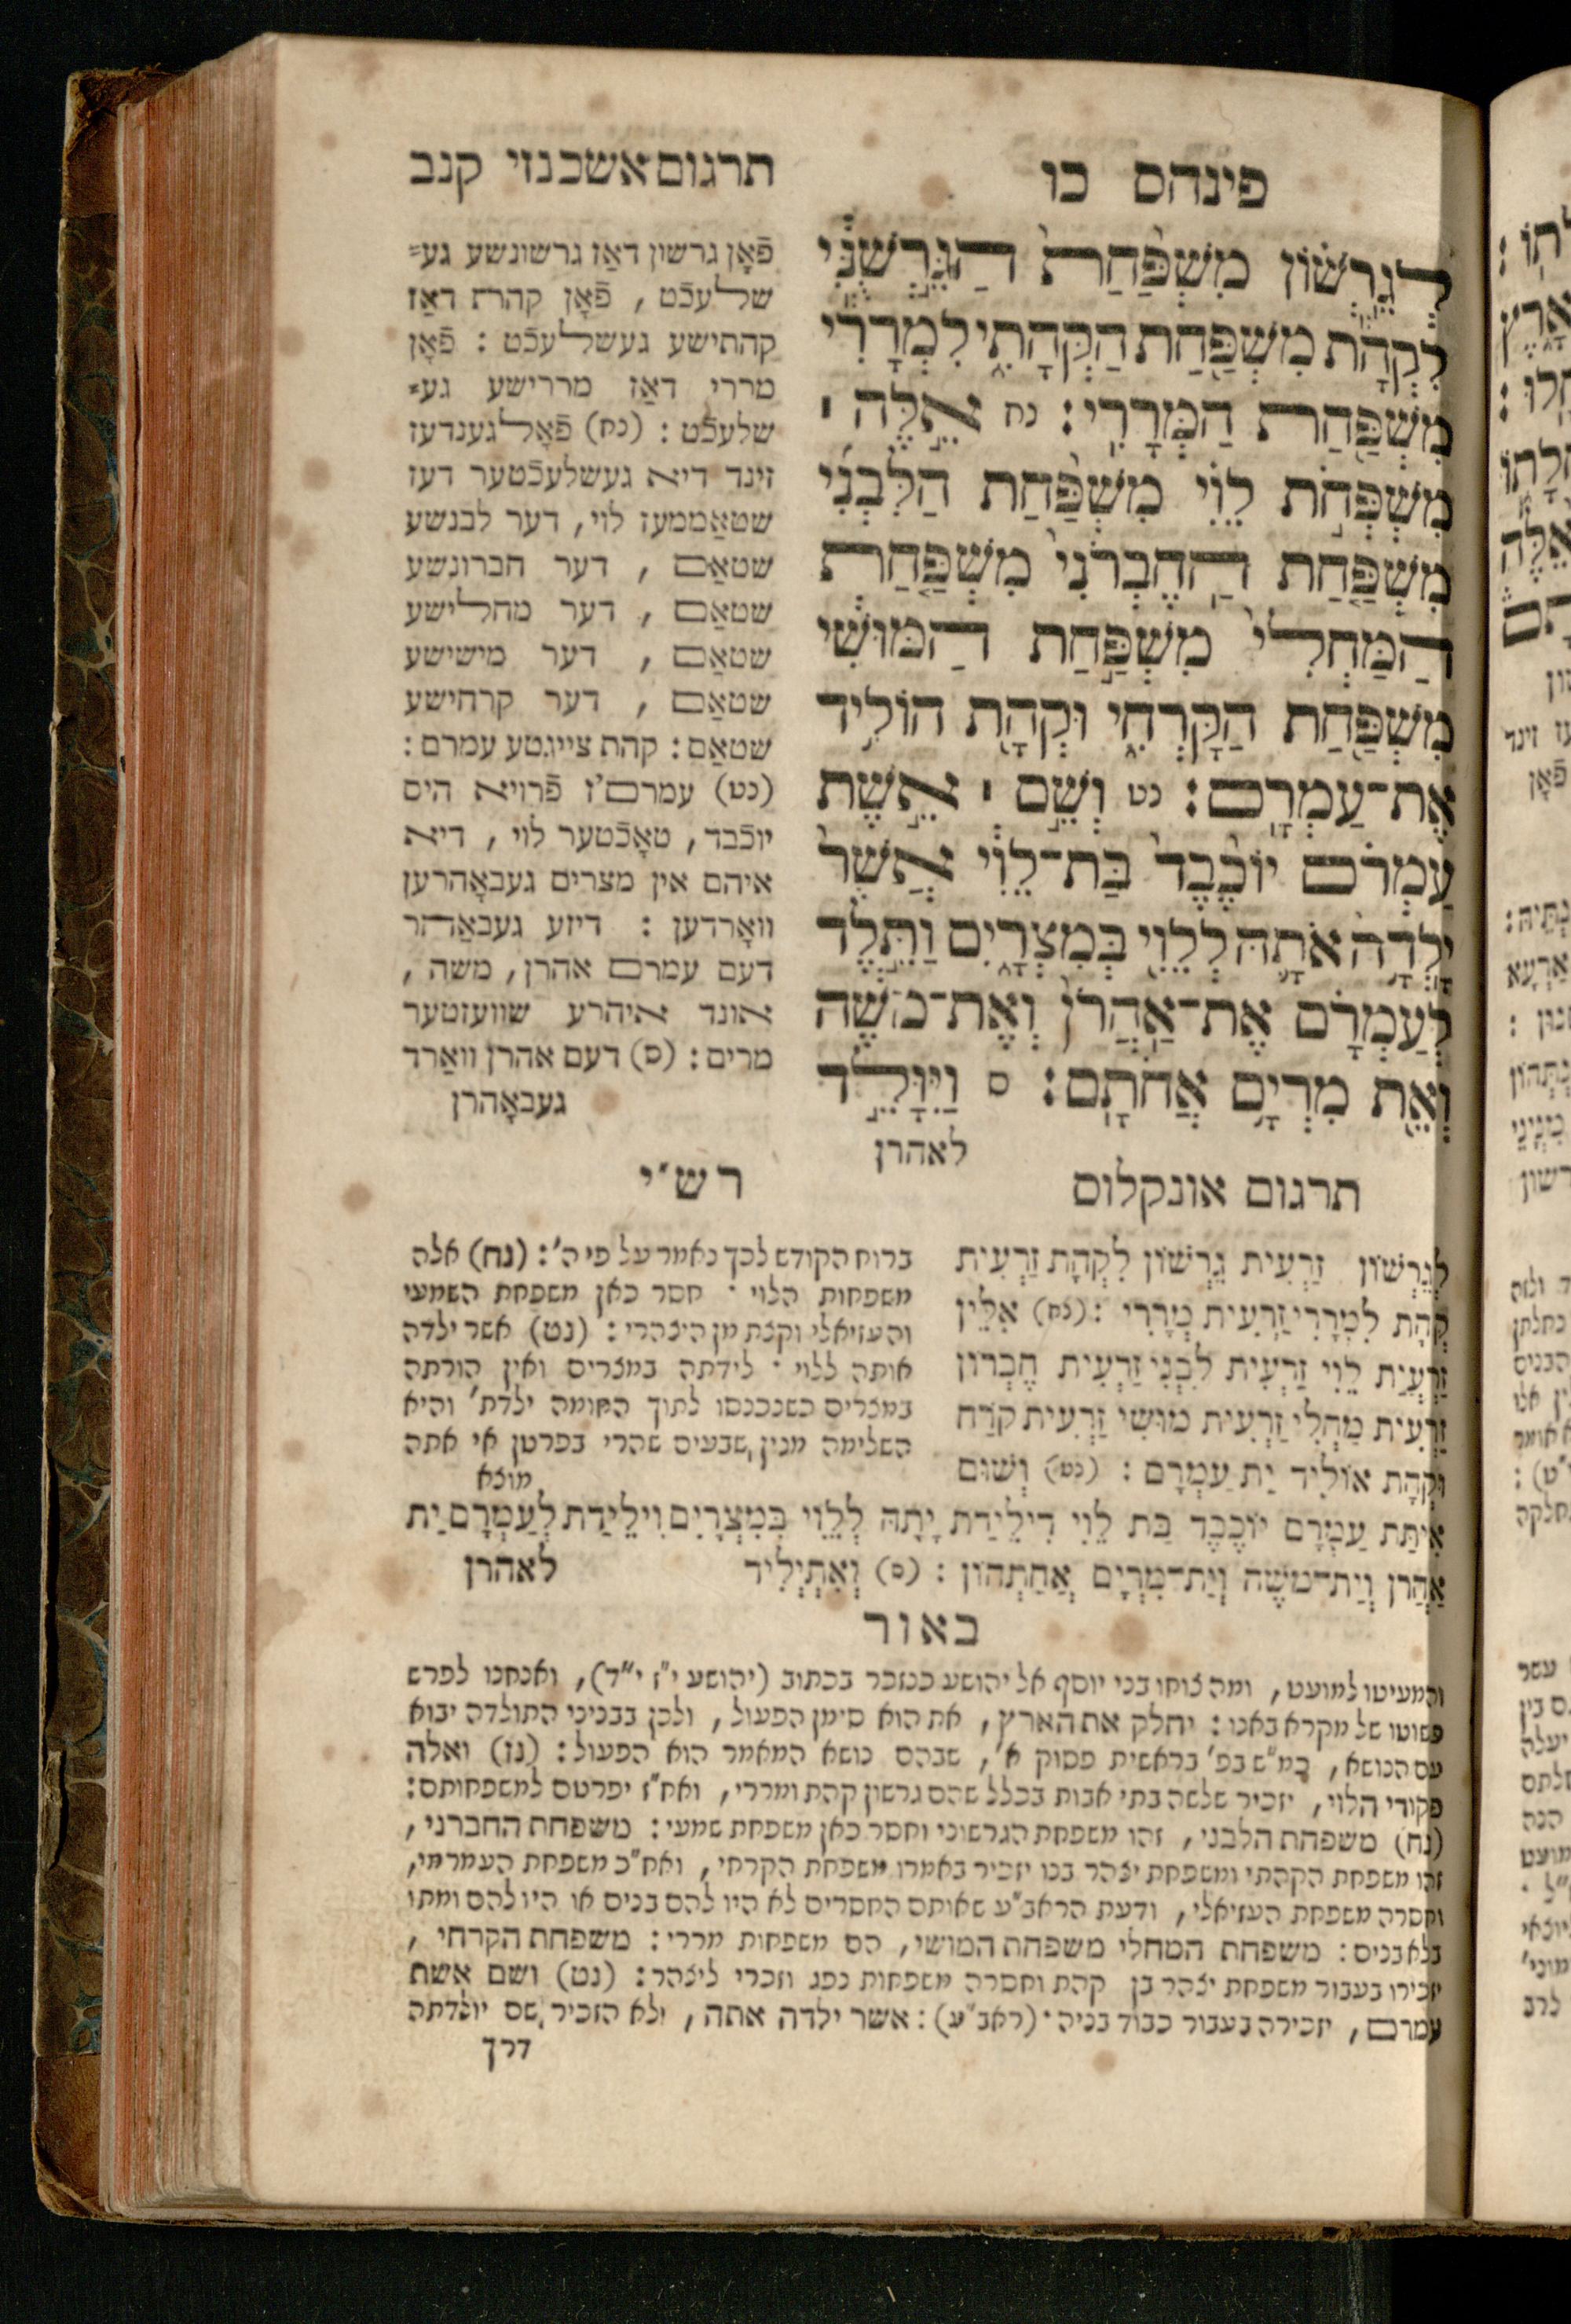 פינחס כו
תרגום אשכנזי קנב
לְגֵרְשׁוֹן מִשְׁפַּחַת הַגֵּרְשֻׁנִּי
לִקְהָת מִשְׁפַּחַת הַקְּהָתִי לִמְרָרִי
מִשְׁפַּחַת הַמְּרָרִי: נח אֵלֶּה ׀
מִשְׁפְּחֹת לֵוִי מִשְׁפַּחַת הַלִּבְנִי
מִשְׁפַּחַת הַחֶבְרֹנִי מִשְׁפַּחַת
הַמַּחְלִי מִשְׁפַּחַת הַמּוּשִׁי
מִשְׁפַּחַת הַקָּרְחִי וּקְהָת הוֹלִיד
אֶת־עַמְרָם: נט וְשֵׁם ׀ אֵשֶׁת
עַמְרָם יוֹכֶבֶד בַּת־לֵוִי אֲשֶׁר
יָלְדָה אֹתָהּ לְלֵוִי בְּמִצְרָיִם וַתֵּלֶד
לְעַמְרָם אֶת־אַהֲרֹן וְאֶת־מֹשֶׁה
וְאֵת מִרְיָם אֲחֹתָם: ס וַיִּוָּלֵד
לאהרן
פֿאָן גרשון דאַז גרשונשע גע=
שלעכֿט, פֿאָן קהת דאַז
קהתישע געשלעכֿט: פֿאָן
מררי דאַז מררישע גע=
שלעכֿט: (נח) פֿאָלגענדעז
זינד דיא געשלעכֿטער דעז
שטאַממעז לוי, דער לבנשע
שטאַם, דער חברונשע
שטאַם, דער מחלישע
שטאַם, דער מישישע
שטאַם, דער קרחישע
שטאַם: קהת צייגטע עמרם:
(נט) עמרם'ז פֿרויא היס
יוכֿבד, טאָכֿטער לוי, דיא
איהם אין מצרים געבאָהרען
וואָרדען: דיזע געבאַהר
דעם עמרם אהרן, משה,
אונד איהרע שוועזטער
מרים: (ס) דעם אהרן וואַרד
געבאָהרן
תרגום אונקלוס
לְגֵרְשׁוֹן זַרְעִית גֵּרְשׁוֹן לִקְהָת זַרְעִית
קְהָת לִמְרָרִי זַרְעִית מְרָרִי: (נח) אִלֵּין
זַרְעֲיַת לֵוִי זַרְעִית לִבְנִי זַרְעִית חֶבְרוֹן
זַרְעִית מַחְלִי זַרְעִית מוּשִׁי זַרְעִית קֹרַח
וּקְהָת אוֹלִיד יַת עַמְרָם: (נט) וְשׁוּם
אִיתַּת עַמְרָם יוֹכֶבֶד בַּת לֵוִי דִּילֵידַת יָתָהּ לְלֵוִי בְּמִצְרַיִם וִילֵידַת לְעַמְרָם יַת
אַהֲרֹן וְיַת־מֹשֶׁה וְיַת־מִרְיָם אֲחָתְהוֹן: (ס) וְאִתְיְלִיד
לאהרן
רש״י
ברוח הקודש לכך נאמר על פי ה': (נח) אלה
משפחות הלוי · חסר כאן משפחת השמעי
והעזיאלי וקצת מן היצהרי: (נט) אשר ילדה
אותה ללוי · לידתה במצרים ואין הורתה
במצרים כשנכנסו לתוך החומה ילדת' והיא
השלימה מנין שבעים שהרי בפרטן אי אתה
מוצא
באור
והמעיטו למועט, ומה צוחו בני יוסף אל יהושע כנזכר בכתוב (יהושע י״ז י״ד), ואנחנו לפרש
פשוטו של מקרא באנו: יחלק את הארץ, את הוא סימן הפעול, ולכן בבניני התולדה יבוא
עם הנושא, כמ״ש בפ' בראשית פסוק א', שבהם נושא המאמר הוא הפעול: (נז) ואלה
פקודי הלוי, יזכיר שלשה בתי אבות בכלל שהם גרשון קהת ומררי, ואח״ז יפרטם למשפחותם:
(נח) משפחת הלבני, זהו משפחת הגרשוני וחסר כאן משפחת שמעי: משפחת החברני,
זהו משפחת הקהתי ומשפחת יצהר בנו יזכיר באמרו משפחת הקרחי, ואח״כ משפחת העמרמי,
וחסרה משפחת העזיאלי, ודעת הראב״ע שאותם החסרים לא היו להם בנים או היו להם ומתו
בלא בנים: משפחת המחלי משפחת המושי, הם משפחות מררי: משפחת הקרחי,
יזכירו בעבור משפחת יצהר בן קהת וחסרה משפחות נפג וזכרי ליצהר: (נט) ושם אשת
עמרם, יזכירה בעבור כבוד בניה · (ראב״ע): אשר ילדה אתה, ולא הזכיר שם יולדתה
דרך